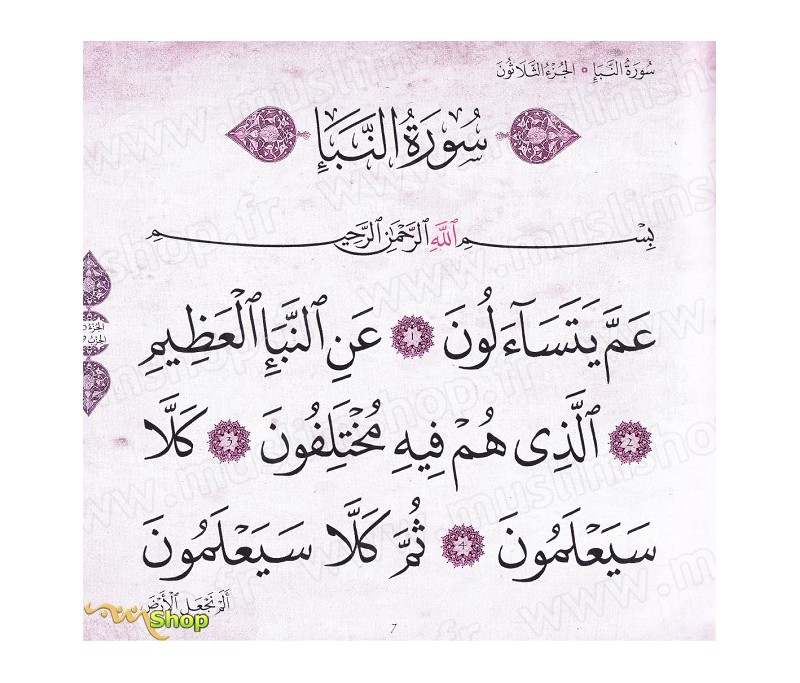 سُورَةُ النَّبَإِ • الجُزْءُ الثَّلَاثُونَ
سُورَةُ النَّبَإِ
بِسْمِ ٱللَّهِ ٱلرَّحْمَٰنِ ٱلرَّحِيمِ
عَمَّ يَتَسَآءَلُونَ ١ عَنِ ٱلنَّبَإِ ٱلْعَظِيمِ
٢ ٱلَّذِى هُمْ فِيهِ مُخْتَلِفُونَ ٣ كَلَّا
سَيَعْلَمُونَ ٤ ثُمَّ كَلَّا سَيَعْلَمُونَ
أَلَمْ نَجْعَلِ ٱلْأَرْضَ
Shop
7
www.muslimshop.fr